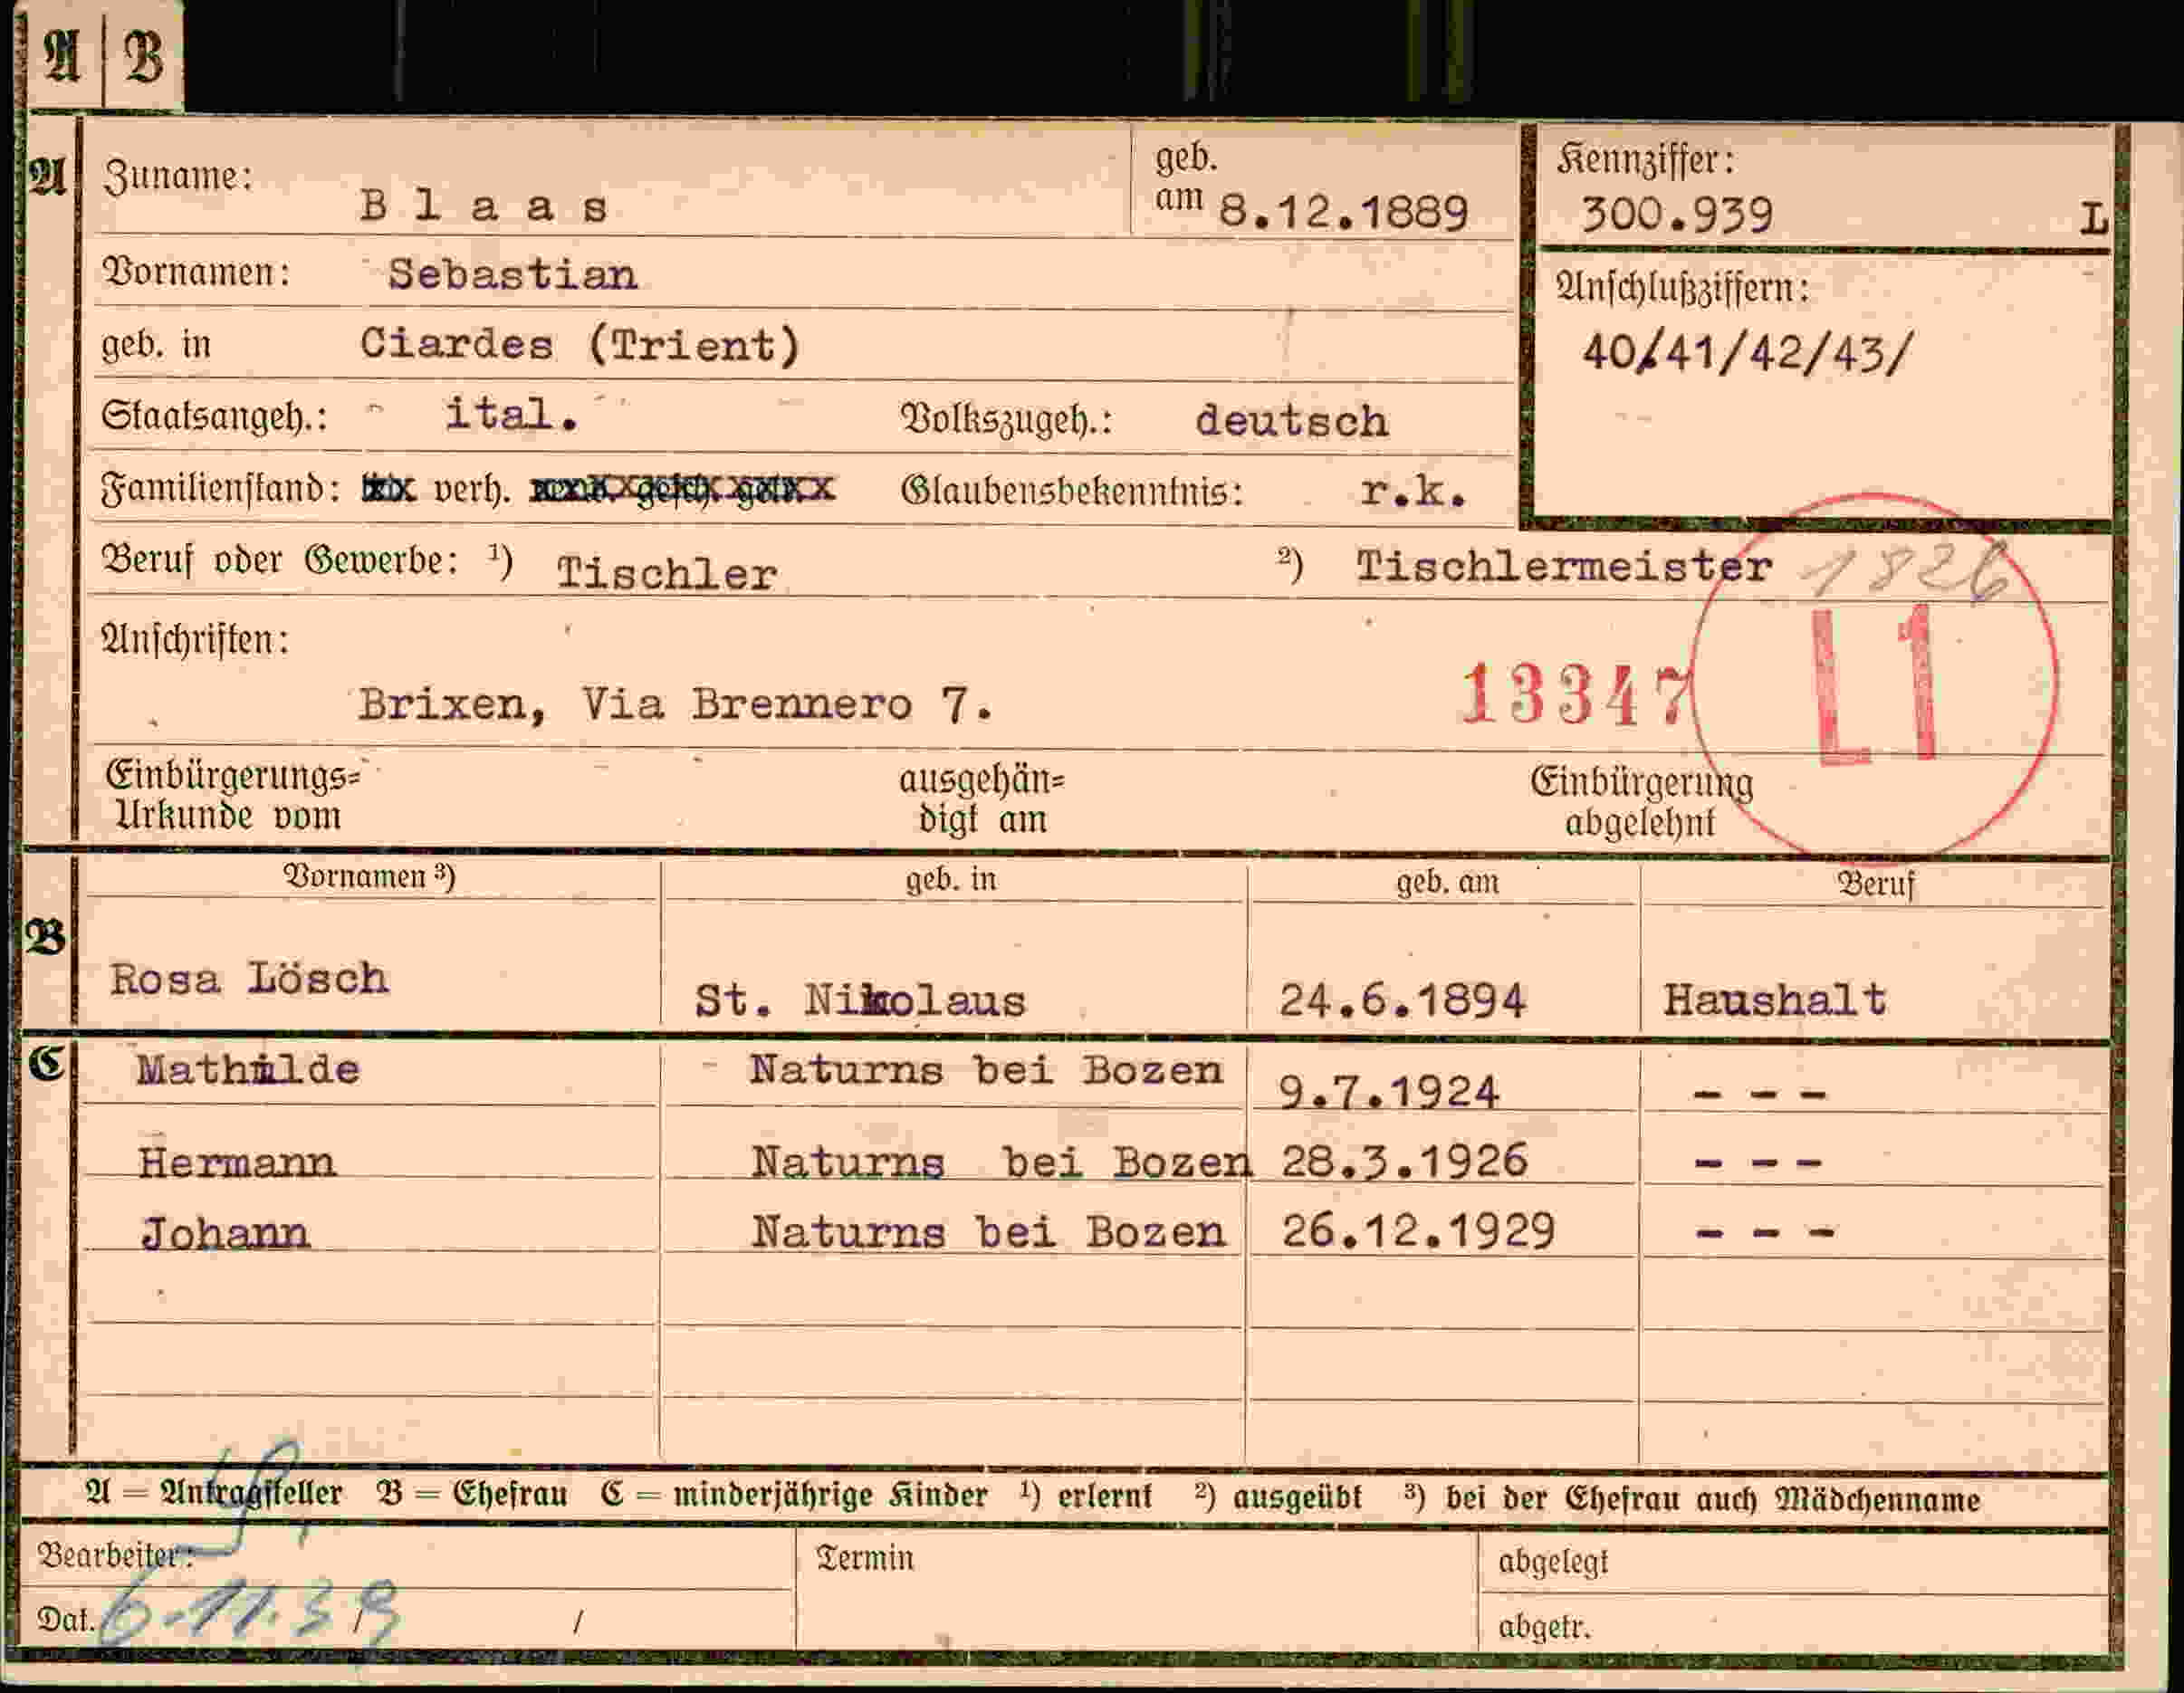 A | B
A
Zuname: B l a a s
geb. am 8.12.1889
Kennziffer:
300.939 L
Vornamen: Sebastian
Anschlußziffern:
40/41/42/43/
geb. in Ciardes (Trient)
Staatsangeh.: ital. Volkszugeh.: deutsch
Familienstand: verh. Glaubensbekenntnis: r.k.
Beruf oder Gewerbe: ¹) Tischler ²) Tischlermeister 1826
Anschriften:
Brixen, Via Brennero 7. 13347 L1
Einbürgerungs= ausgehän= Einbürgerung
Urkunde vom digt am abgelehnt
Vornamen ³) geb. in geb. am Beruf
B
Rosa Lösch St. Nikolaus 24.6.1894 Haushalt
C Mathilde Naturns bei Bozen 9.7.1924 - - -
Hermann Naturns bei Bozen 28.3.1926 - - -
Johann Naturns bei Bozen 26.12.1929 - - -
A = Antragsteller B = Ehefrau C = minderjährige Kinder ¹) erlernt ²) ausgeübt ³) bei der Ehefrau auch Mädchenname
Bearbeiter: Termin abgelegt
Dat. 6.11.39 / / abgetr.